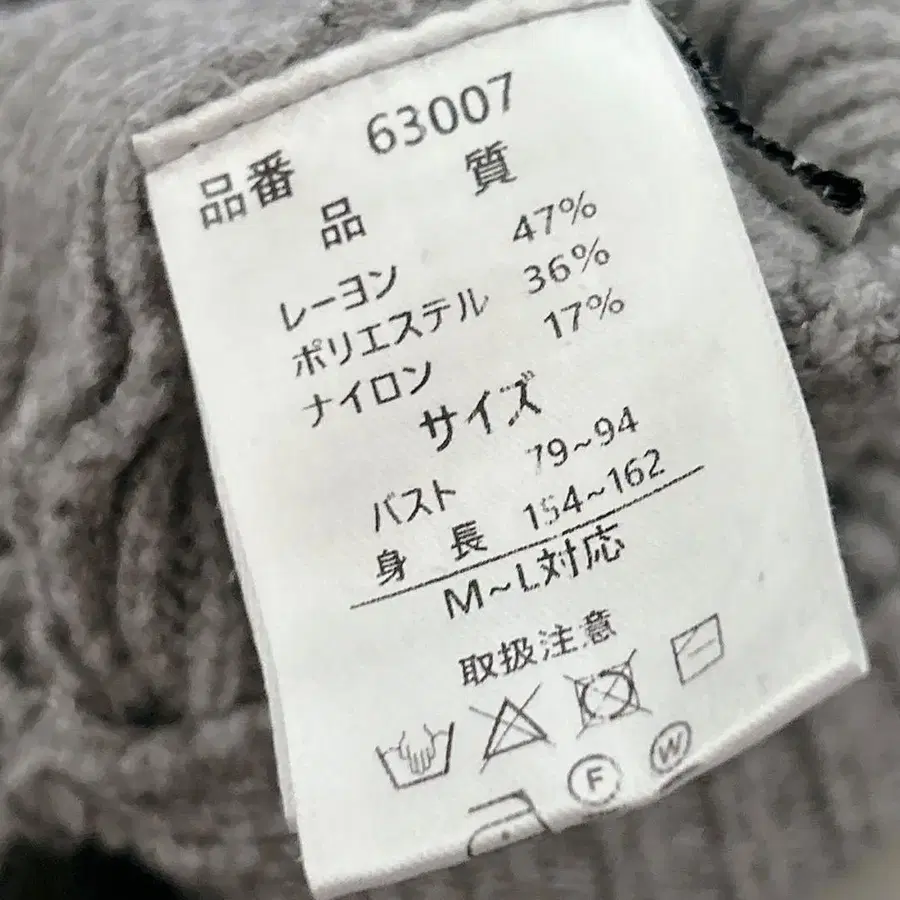 品番 63007
品 質
レーヨン 47%
ポリエステル 36%
ナイロン 17%
サイズ
バスト 79~94
身 長 154~162
M~L対応
取扱注意
F W